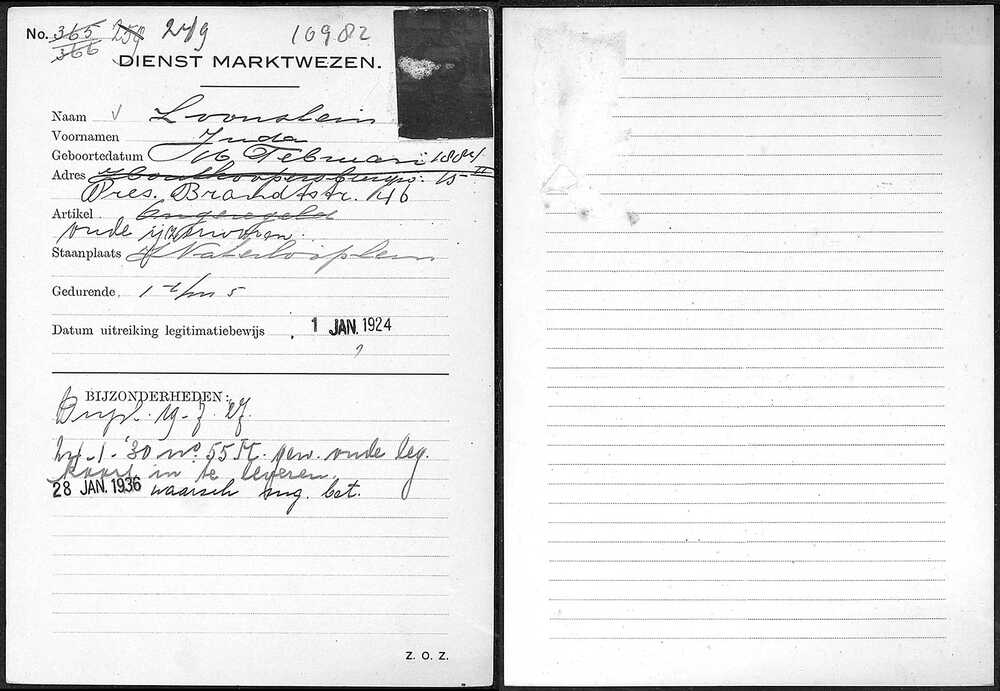 No. 365 259 279 10982
366
DIENST MARKTWEZEN.
Naam Loonstein
Voornamen Juda
Geboortedatum 16 Februari 1884
Adres Houtkoopersburgw. 15 II
Pres. Brandtstr. 146
Artikel Ongeregeld
oude ijzerwaren.
Staanplaats Waterlooplein
Gedurende 1 t/m 5
Datum uitreiking legitimatiebewijs 1 JAN. 1924
BIJZONDERHEDEN:
19-7-27.
-1-'30 no. 55 oude leg.
kaart in te leveren.
28 JAN. 1936 waarsch ong. bet.
Z. O. Z.